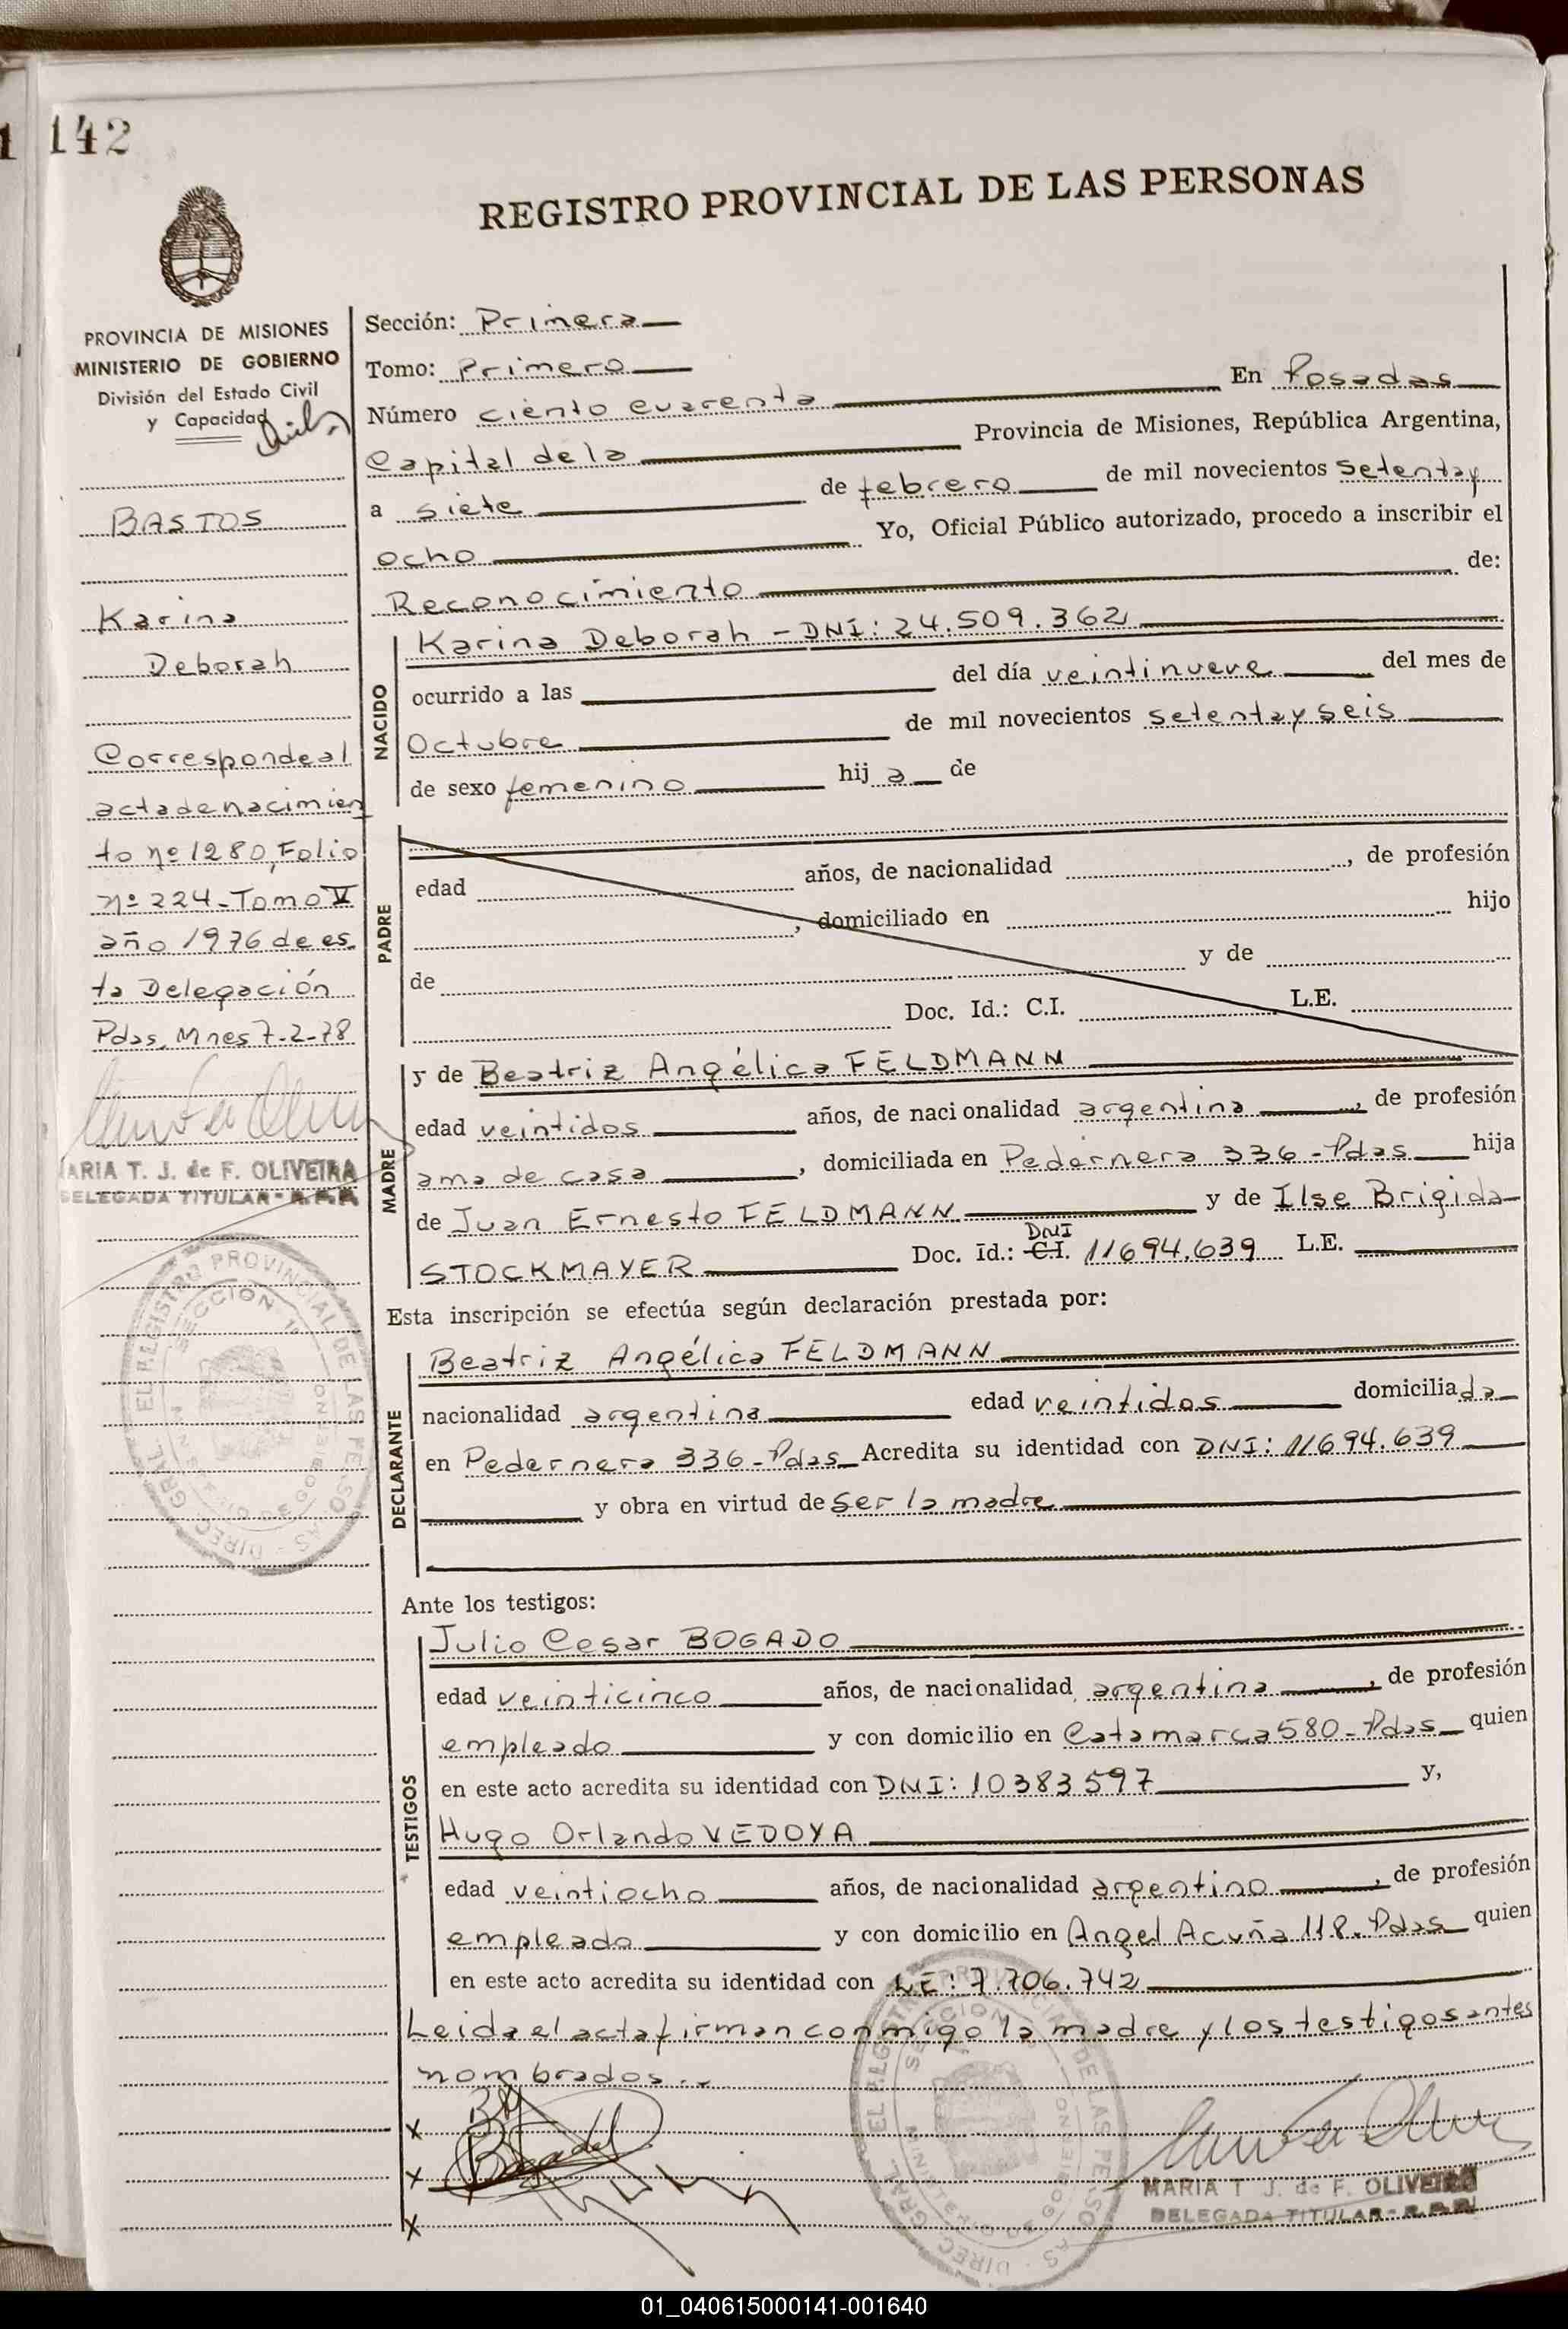 142
REGISTRO PROVINCIAL DE LAS PERSONAS
PROVINCIA DE MISIONES
MINISTERIO DE GOBIERNO
División del Estado Civil
y Capacidad
BASTOS
Karina
Deborah
Corresponde al
acta de nacimien
to nº 1280, Folio
nº 224-Tomo V
año 1976 de es
ta Delegación
Pdas, Mnes 7-2-78
ARIA T. J. de F. OLIVEIRA
DELEGADA TITULAR - R.P.P.
Sección: Primera
Tomo: Primero
Número ciento cuarenta En Posadas
Capital de la Provincia de Misiones, República Argentina,
a siete de febrero de mil novecientos setenta y
ocho Yo, Oficial Público autorizado, procedo a inscribir el
Reconocimiento de:
NACIDO
Karina Deborah - DNI: 24.509.362
ocurrido a las del día veintinueve del mes de
Octubre de mil novecientos setenta y seis
de sexo femenino hij a de
PADRE
edad años, de nacionalidad , de profesión
, domiciliado en hijo
de y de
Doc. Id.: C.I. L.E.
MADRE
y de Beatriz Angélica FELDMANN
edad veintidos años, de nacionalidad argentina, de profesión
ama de casa, domiciliada en Pedernera 336-Pdas hija
de Juan Ernesto FELDMANN y de Ilse Brigida
STOCKMAYER Doc. Id.: C.I. DNI 11694.639 L.E.
Esta inscripción se efectúa según declaración prestada por:
DECLARANTE
Beatriz Angélica FELDMANN
nacionalidad argentina edad veintidos domiciliada
en Pedernera 336-Pdas Acredita su identidad con DNI: 11694.639
y obra en virtud de ser la madre
Ante los testigos:
TESTIGOS
Julio Cesar BOGADO
edad veinticinco años, de nacionalidad argentina, de profesión
empleado y con domicilio en Catamarca 580-Pdas quien
en este acto acredita su identidad con DNI: 10383.597 y,
Hugo Orlando VEDOYA
edad veintiocho años, de nacionalidad argentino, de profesión
empleado y con domicilio en Angel Acuña 118. Pdas quien
en este acto acredita su identidad con LE: 7.706.742
Leida el acta firman conmigo la madre y los testigos antes
nombrados.-
x
x
x
MARIA T J. de F. OLIVEIRA
DELEGADA TITULAR - R.P.P.
01_040615000141-001640